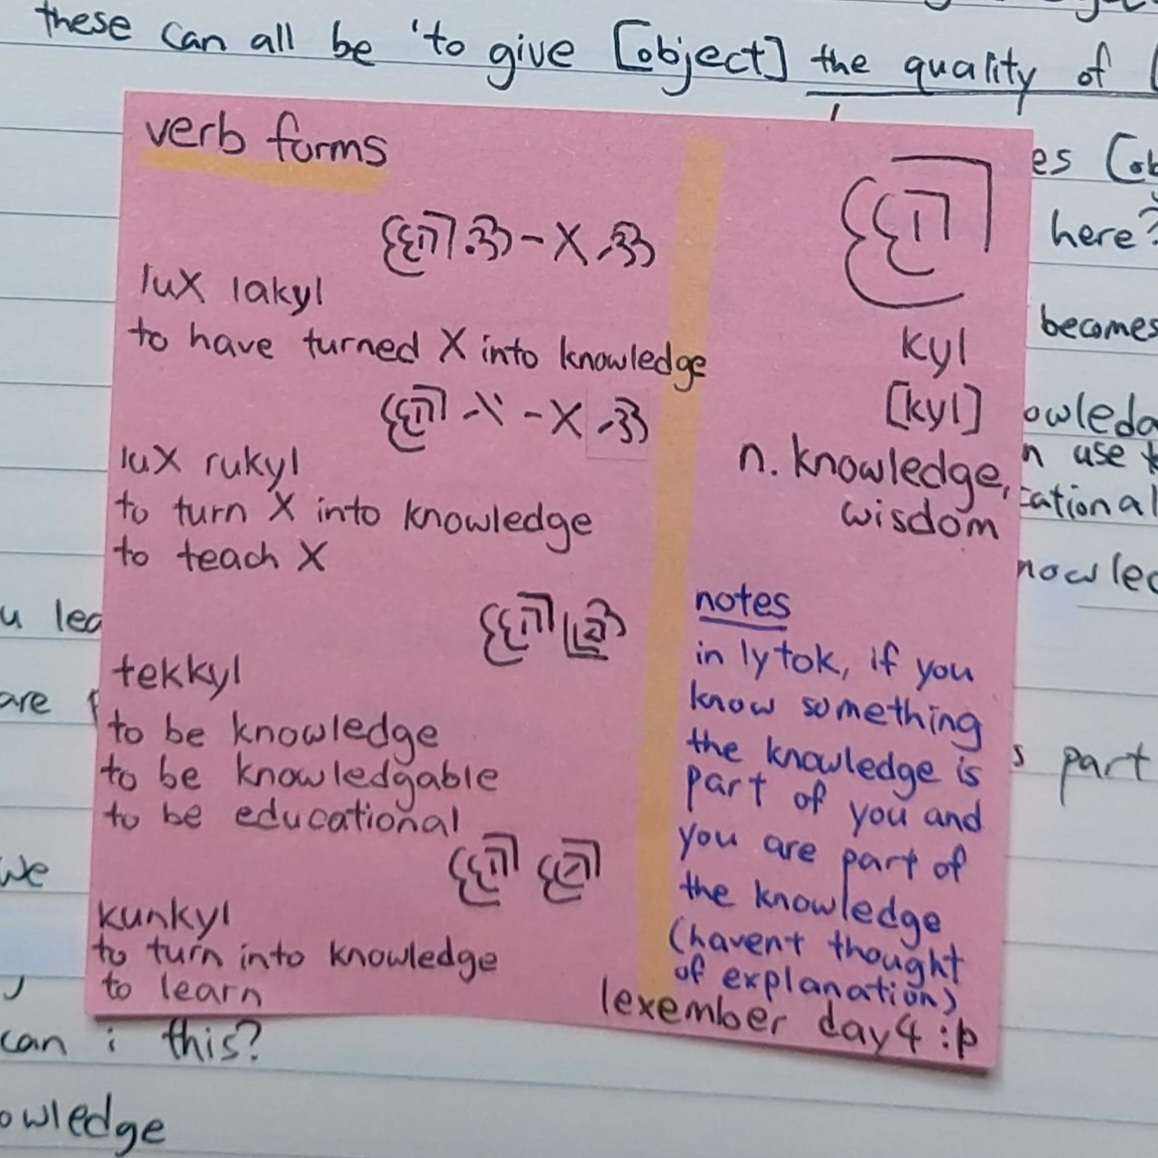 these can all be 'to give [object] the quality of [
verb forms
- X
lux lakyl
to have turned X into knowledge
- X
lux rukyl
to turn X into knowledge
to teach X
tekkyl
to be knowledge
to be knowledgable
to be educational
kunkyl
to turn into knowledge
to learn
kyl
[kyl]
n. knowledge,
wisdom
notes
in lytok, if you
know something
the knowledge is
part of you and
you are part of
the knowledge
(havent thought
of explanation)
lexember day 4 :p
here?
becomes
n use
part
are
we
can i this?
owledge